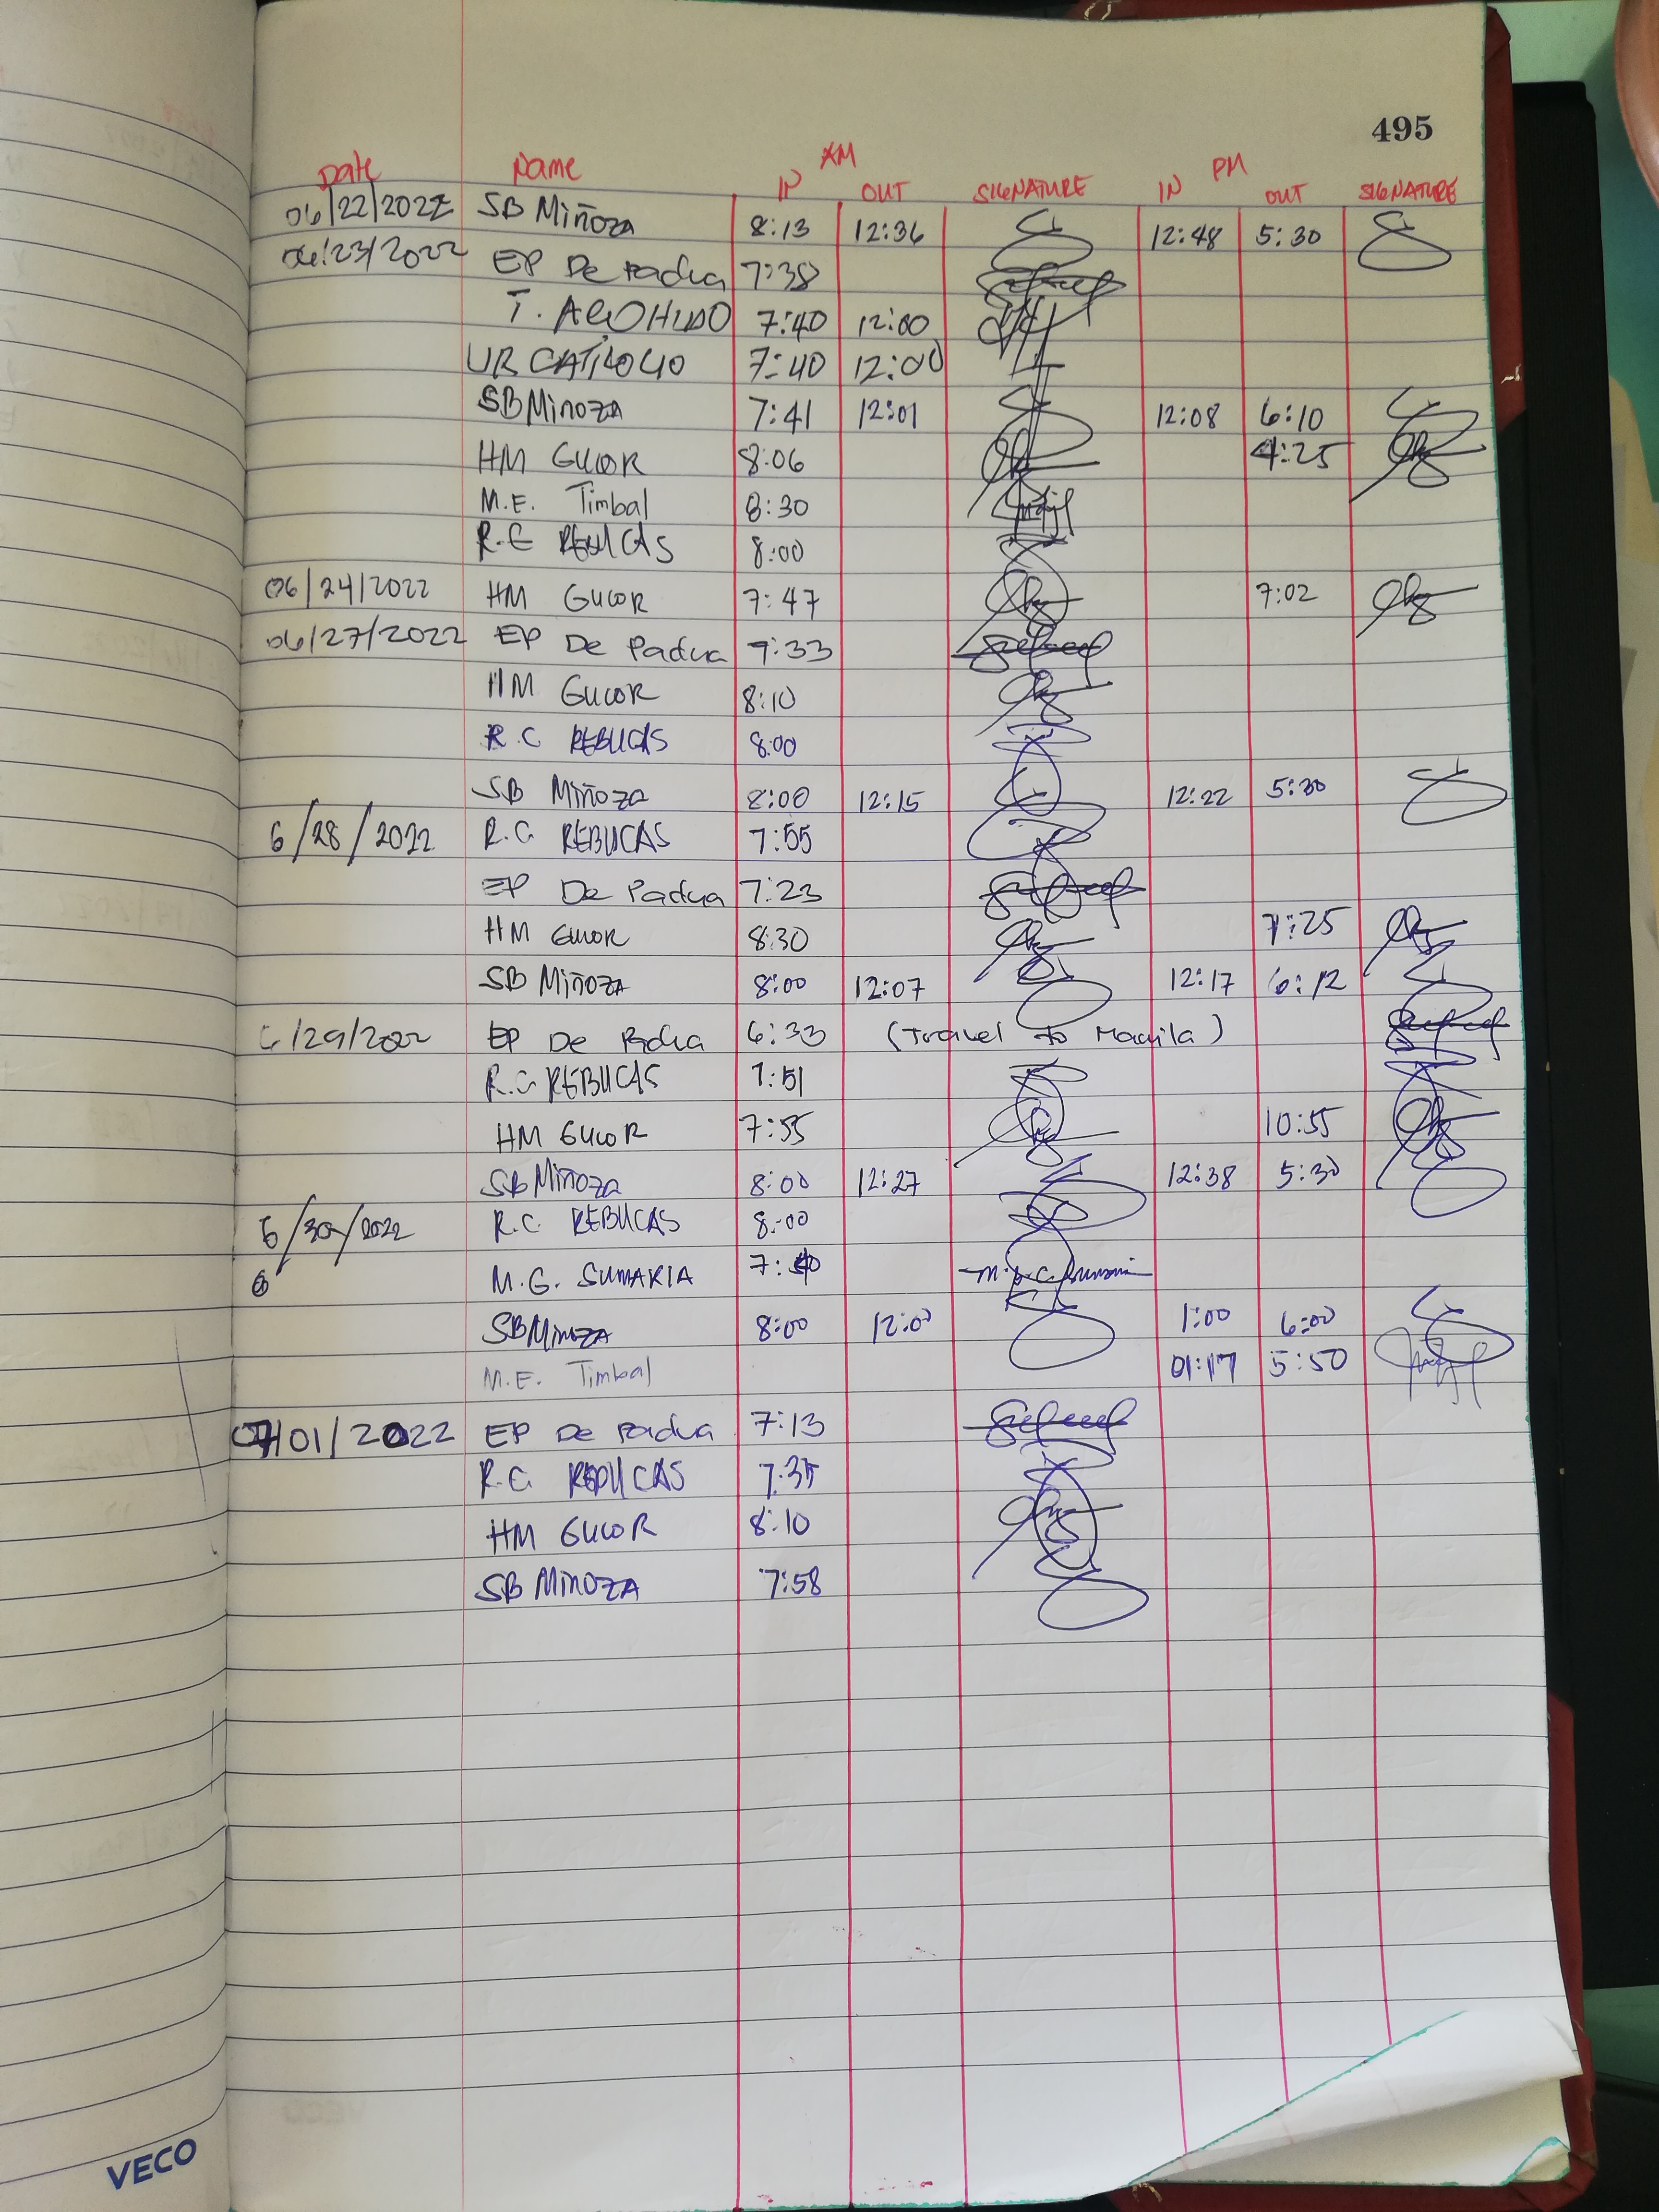 495
Date Name AM PM
IN OUT SIGNATURE IN OUT SIGNATURE
06/22/2022 SB Miñoza 8:13 12:36 12:48 5:30
06/23/2022 EP De Padua 7:38
T. 7:40 12:00
UR 7:40 12:00
SB Minoza 7:41 12:01 12:08 6:10
HM Gucor 8:06 4:25
M.E. Timbal 8:30
R.C REBUCAS 8:00
06/24/2022 HM Gucor 7:47 7:02
06/27/2022 EP De Padua 7:33
HM Gucor 8:10
R.C. REBUCAS 8:00
SB Miñoza 8:00 12:15 12:22 5:30
6/28/2022 R.C. REBUCAS 7:55
EP De Padua 7:23
HM Gucor 8:30 7:25
SB Miñoza 8:00 12:07 12:17 6:12
6/29/2022 EP De Padua 6:33 (Travel to Manila)
R.C. REBUCAS 7:51
HM Gucor 7:55 10:55
SB Miñoza 8:00 12:27 12:38 5:30
6/30/2022 R.C. REBUCAS 8:00
6 M.G. SUMARIA 7:
SB Minoza 8:00 12:00 1:00 6:00
M.E. Timbal 01:17 5:50
07/01/2022 EP De Padua 7:13
R.C. REBUCAS 7:35
HM Gucor 8:10
SB Minoza 7:58
VECO